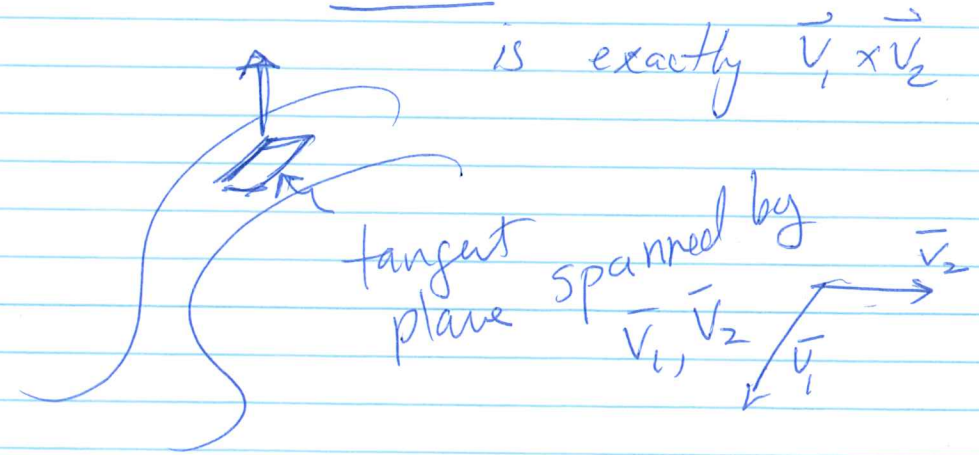 is exactly V⃗₁ × V⃗₂
tangent
plane spanned by
V̄₁, V̄₂
V̄₂
V̄₁